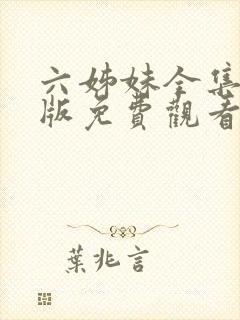 六姊妹全集
版免費觀看
葉兆言